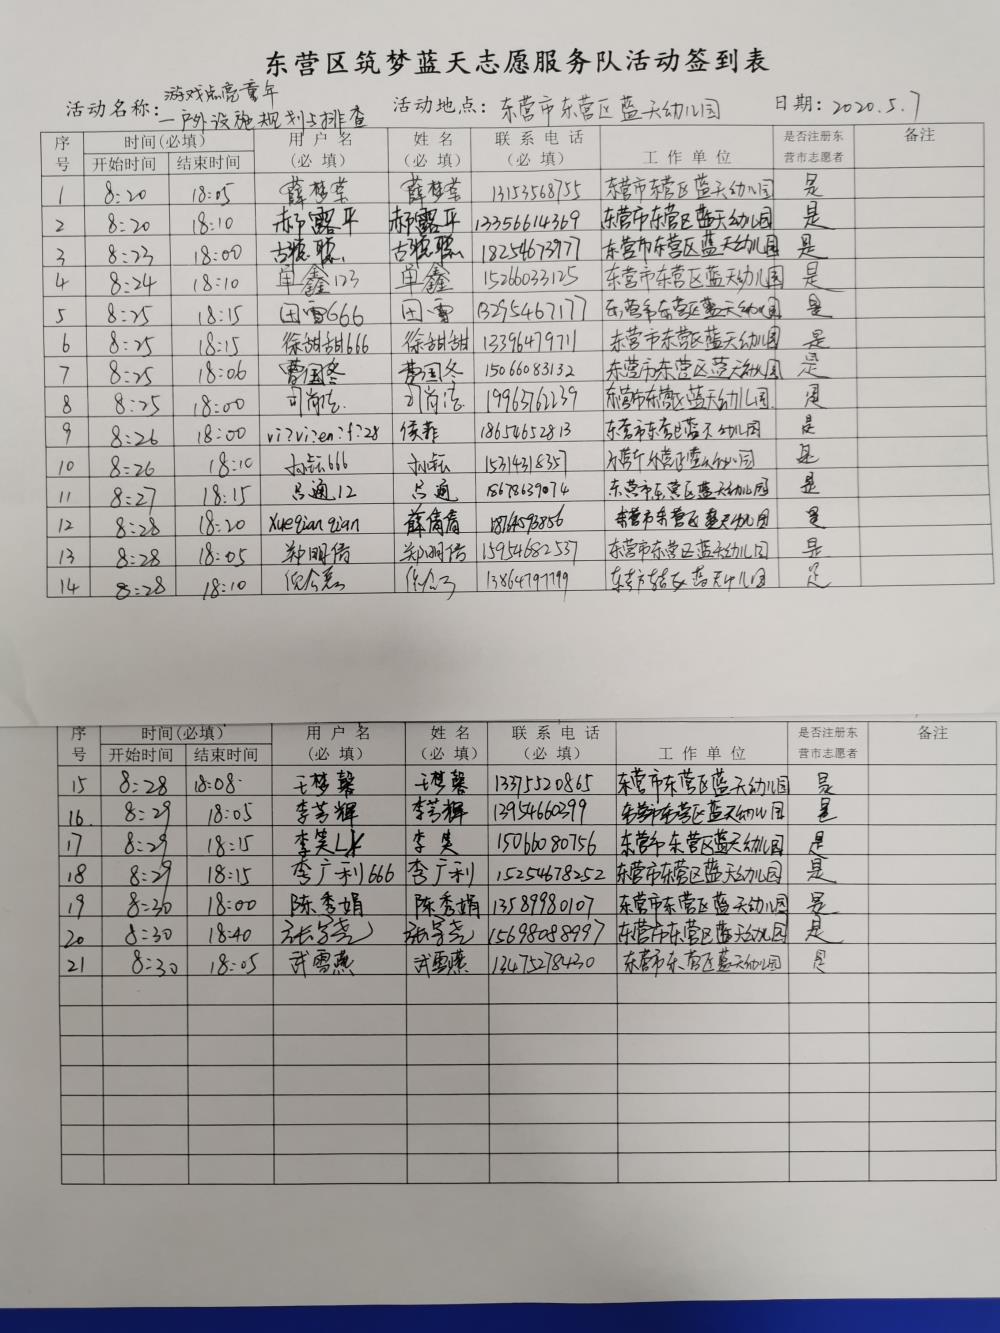 东营区筑梦蓝天志愿服务队活动签到表
活动名称: 游戏点亮童年 活动地点: 东营市东营区蓝天幼儿园 日期: 2020.5.7
一户外设施规划与排查
序号 时间(必填) 用户名(必填) 姓名(必填) 联系电话(必填) 工作单位 是否注册东营市志愿者 备注
开始时间 结束时间
1 8:20 18:05 薛梦荣 薛梦荣 13153568755 东营市东营区蓝天幼儿园 是
2 8:20 18:10 郝露平 郝露平 13356614369 东营市东营区蓝天幼儿园 是
3 8:23 18:00 18254673977 东营市东营区蓝天幼儿园 是
4 8:24 18:10 单鑫123 单鑫 15266033125 东营市东营区蓝天幼儿园 是
5 8:25 18:15 田雪666 田雪 13295467177 东营市东营区蓝天幼儿园 是
6 8:25 18:15 徐甜甜666 徐甜甜 13396479711 东营市东营区蓝天幼儿园 是
7 8:25 18:06 曹国冬 曹国冬 15066083132 东营市东营区蓝天幼儿园 是
8 8:25 18:00 19963762239 东营市东营区蓝天幼儿园 是
9 8:26 18:00 侯菲 18654652813 东营市东营区蓝天幼儿园 是
10 8:26 18:10 15314318357 东营市东营区蓝天幼儿园 是
11 8:27 18:15 吕通12 吕通 18678639074 东营市东营区蓝天幼儿园 是
12 8:28 18:20 xueqianqian 薛倩倩 18764593856 东营市东营区蓝天幼儿园 是
13 8:28 18:05 郑明倩 郑明倩 15954682537 东营市东营区蓝天幼儿园 是
14 8:28 18:10 13864797799 东营市东营区蓝天幼儿园 是
序号 时间(必填) 用户名(必填) 姓名(必填) 联系电话(必填) 工作单位 是否注册东营市志愿者 备注
开始时间 结束时间
15 8:28 18:08 王梦馨 王梦馨 13375520865 东营市东营区蓝天幼儿园 是
16. 8:29 18:05 李芳辉 李芳辉 13954660399 东营市东营区蓝天幼儿园 是
17 8:29 18:15 李昊LX 李昊 15066080756 东营市东营区蓝天幼儿园 是
18 8:29 18:15 李广利666 李广利 15254678252 东营市东营区蓝天幼儿园 是
19 8:30 18:00 陈秀娟 陈秀娟 13589980107 东营市东营区蓝天幼儿园 是
20 8:30 18:40 15698088997 东营市东营区蓝天幼儿园 是
21 8:30 18:05 武雪燕 武雪燕 13475278430 东营市东营区蓝天幼儿园 是